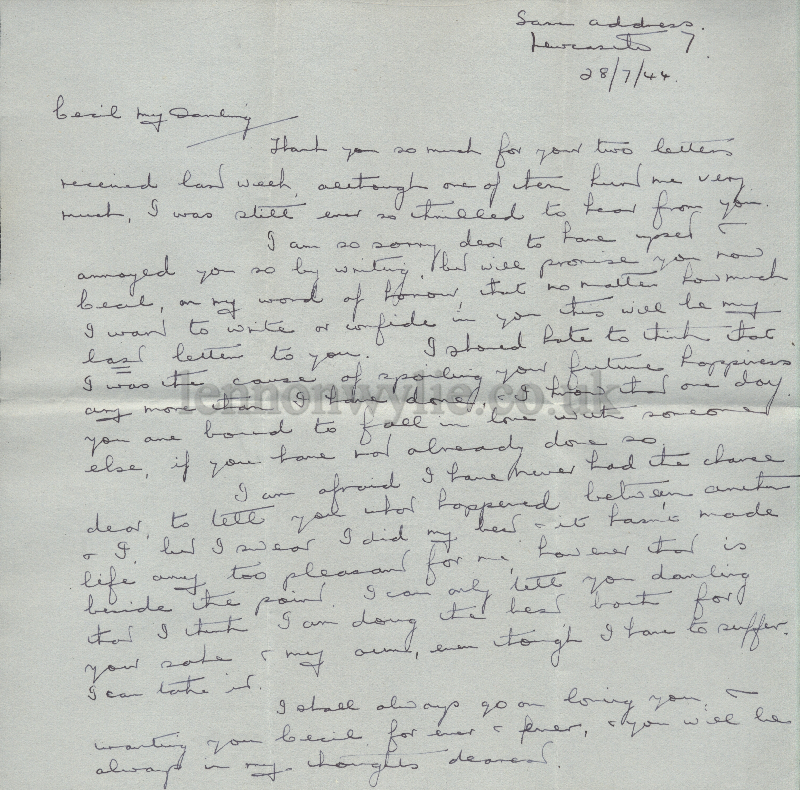 Same address.
Newcastle 7
28/7/44.
Cecil my Darling
Thank you so much for your two letters
received last week, although one of them hurt me very
much, I was still ever so thrilled to hear from you.
I am so sorry dear to have upset &
annoyed you so by writing, but will promise you now
Cecil, on my word of honour, that no matter how much
I want to write or confide in you this will be my
last letter to you. I should hate to think that
I was the cause of spoiling your future happiness
any more than I have done, & I hope that one day
you are bound to fall in love with someone
else, if you have not already done so.
I am afraid I have never had the chance
dear, to tell you what happened between
& I, but I swear I did my best & it hasn't made
life any too pleasant for me, however that is
beside the point. I can only tell you darling
that I think I am doing the best both for
your sake & my own, even though I have to suffer.
I can take it.
I shall always go on loving you, &
wanting you Cecil for ever & ever, & you will be
always in my thoughts dearest.
lennonwylie.co.uk